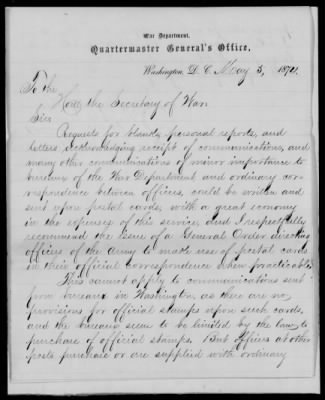 War Department,
Quartermaster General's Office,
Washington, D. C. May 5, 1874.
To the
Hon. the Secretary of War
Sir
Requests for blanks, personal reports, and
letters acknowledging receipt of communications, and
many other communications of minor importance to
bureaus of the War Department and ordinary cor-
respondence between offices, could be written and
sent upon postal cards, with a great economy
in the expenses of this service, and I respectfully
recommend the issue of a General Order directing
officers of the Army to make use of postal cards
in their official correspondence when practicable.
This cannot apply to communications sent
from bureaux in Washington, as there are no
provisions for official stamps upon such cards,
and the bureaux seem to be limited by the law to
purchase of official stamps. But officers at other
posts purchase or are supplied with ordinary